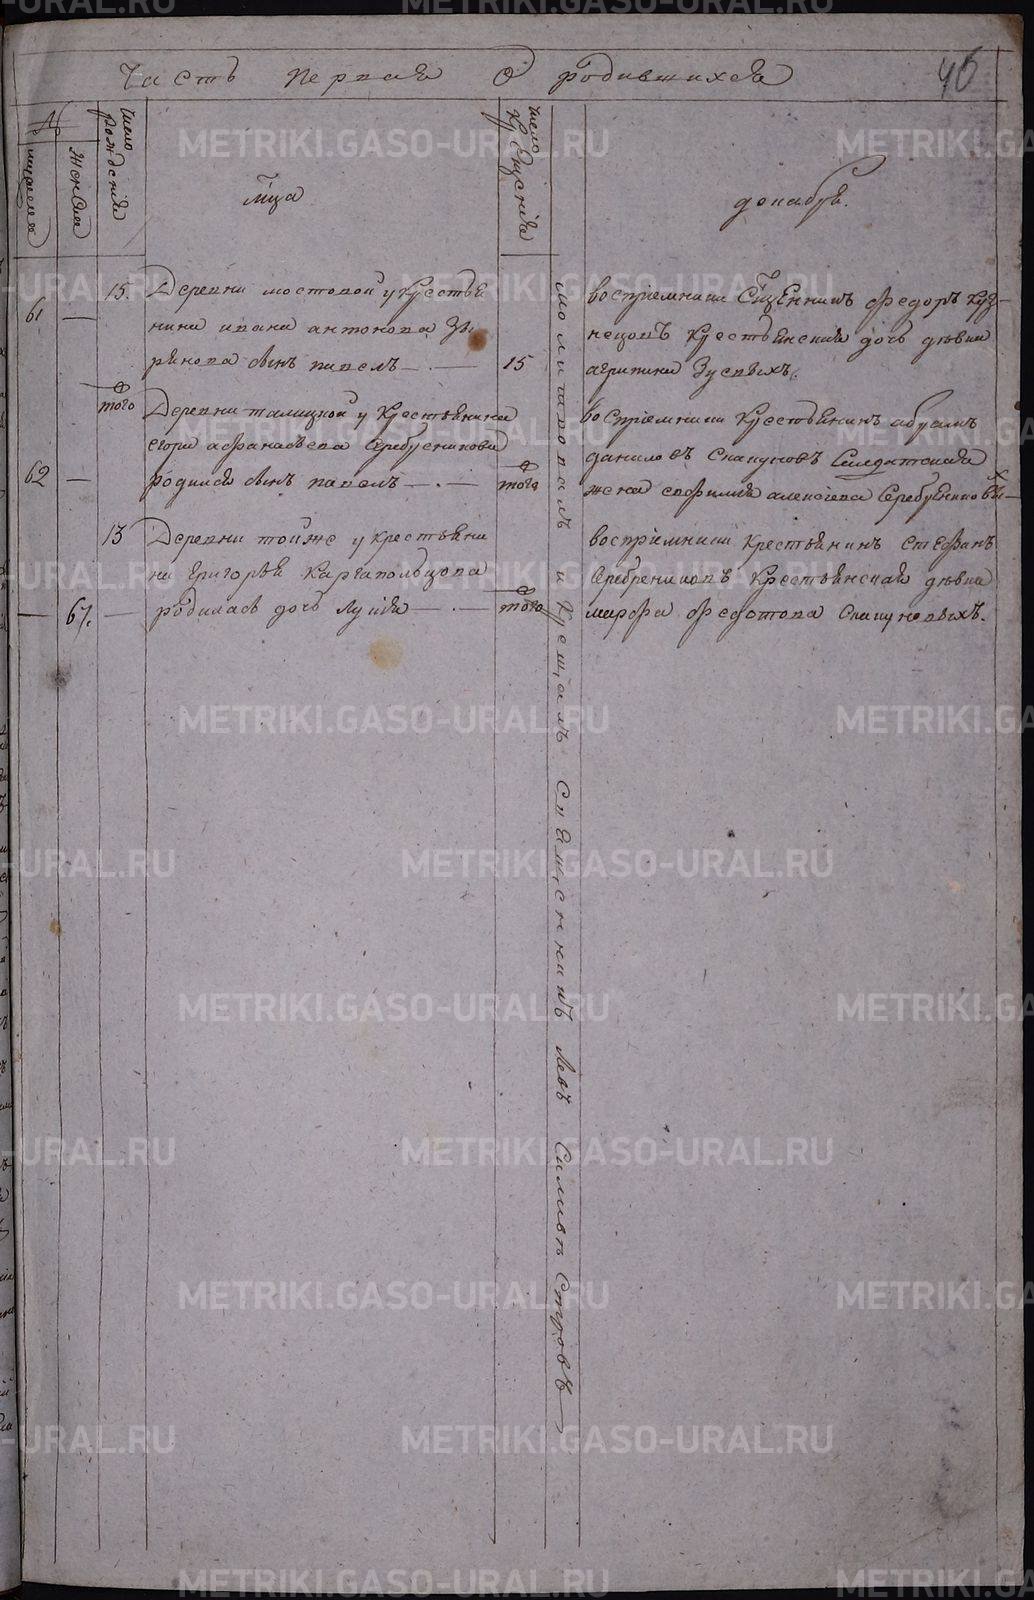 Часть первая о родившихся
40
№
мужеска
женска
число рождения
мца
число крещения
декабря.
61
15.
Деревни мостовой у крестья
нина ивана антонова Зы
рянова сынъ павелъ
15
восприемники Сщенникъ федоръ Куз-
нецовъ крестьянская дочь девка
агрипина Зуевыхъ.
62
того
Деревни талицкой у крестьянина
егора афанасьева Серебреникова
родился сынъ павелъ
того
восприемники крестьянинъ абрамъ
даниловъ Скапуновъ Салдатская
жена Алексиева Серебрениковыхъ
67.
13
Деревни той же у крестьяни
на григорья Каргапольцова
родилась дочь Лукия
того
восприемники крестьянинъ стефанъ
Серебрениковъ крестьянская девка
марфа федотова Скапуновыхъ.
молитвовалъ и крещалъ Священникъ Левъ Сильвестровъ
METRIKI.GASO-URAL.RU